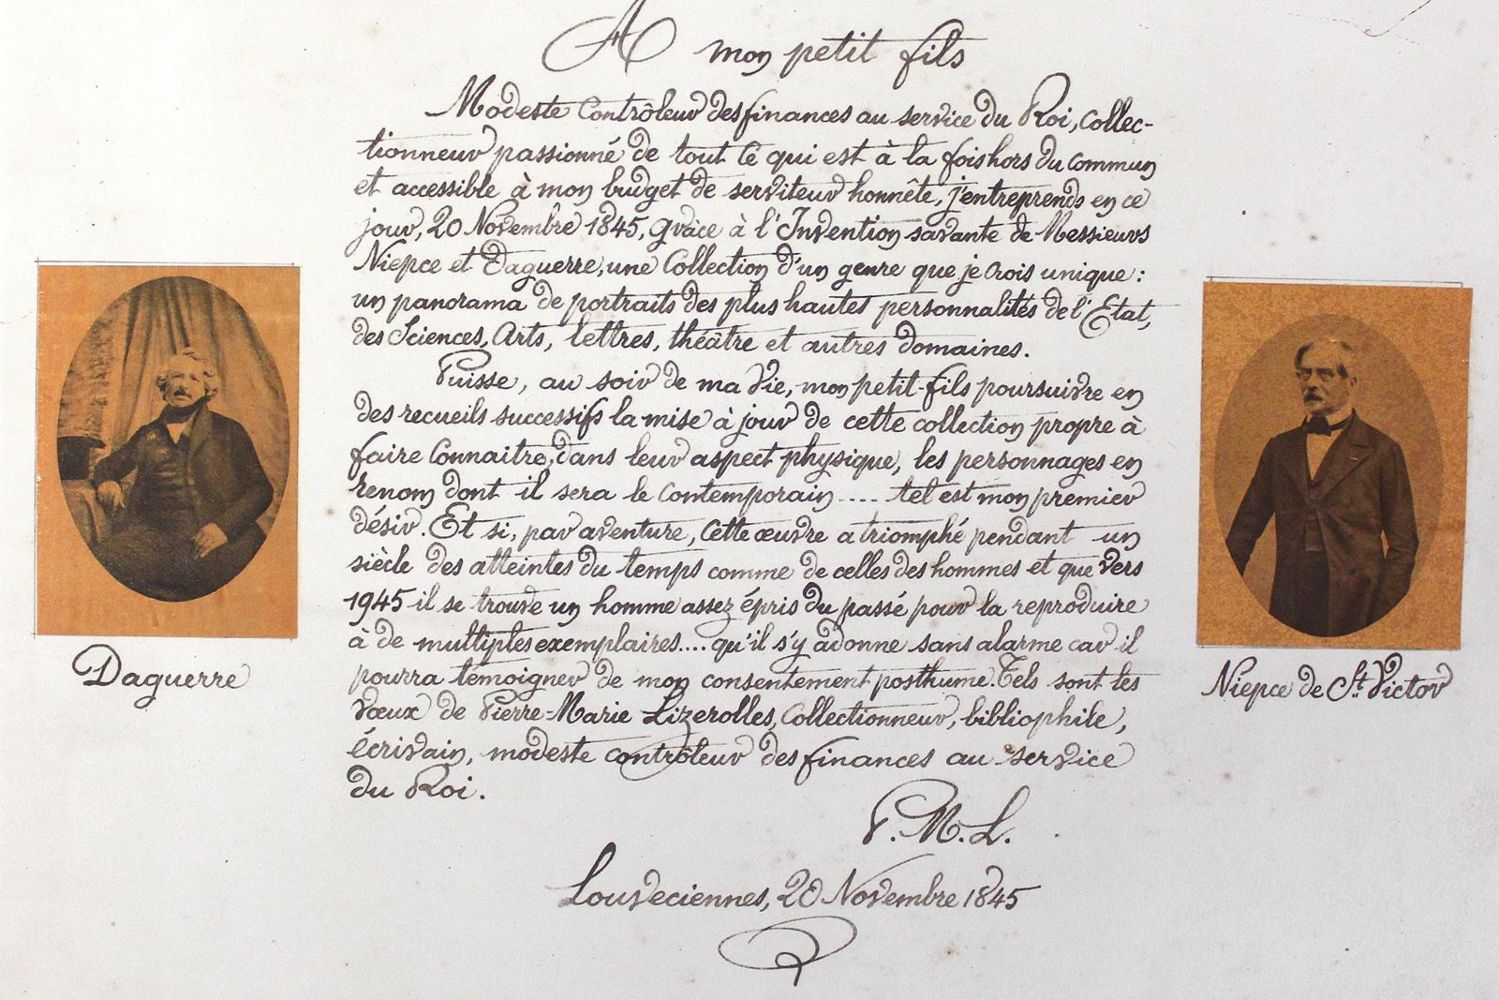 A mon petit fils
Modeste Contrôleur des finances au service du Roi, Collec-
tionneur passionné de tout ce qui est à la fois hors du commun
et accessible à mon budget de serviteur honnête, j'entreprends en ce
jour, 20 Novembre 1845, grâce à l'Invention savante de Messieurs
Niepce et Daguerre, une Collection d'un genre que je crois unique :
un panorama de portraits des plus hautes personnalités de l'Etat,
des Sciences, Arts, lettres, théâtre et autres domaines.
Puisse, au soir de ma Vie, mon petit-fils poursuivre en
des recueils successifs la mise à jour de cette collection propre à
faire Connaitre, dans leur aspect physique, les personnages en
renom dont il sera le Contemporain.... tel est mon premier
désir. Et si, par aventure, Cette œuvre a triomphé pendant un
siècle des atteintes du temps comme de celles des hommes et que vers
1945 il se trouve un homme assez épris du passé pour la reproduire
à de multiples exemplaires.... qu'il s'y adonne sans alarme car il
pourra témoigner de mon consentement posthume. Tels sont les
vœux de Pierre-Marie Lizerolles, Collectionneur, bibliophile,
écrivain, modeste contrôleur des finances au service
du Roi.
P.M.L.
Louveciennes, 20 Novembre 1845
Daguerre
Niepce de St. Victor